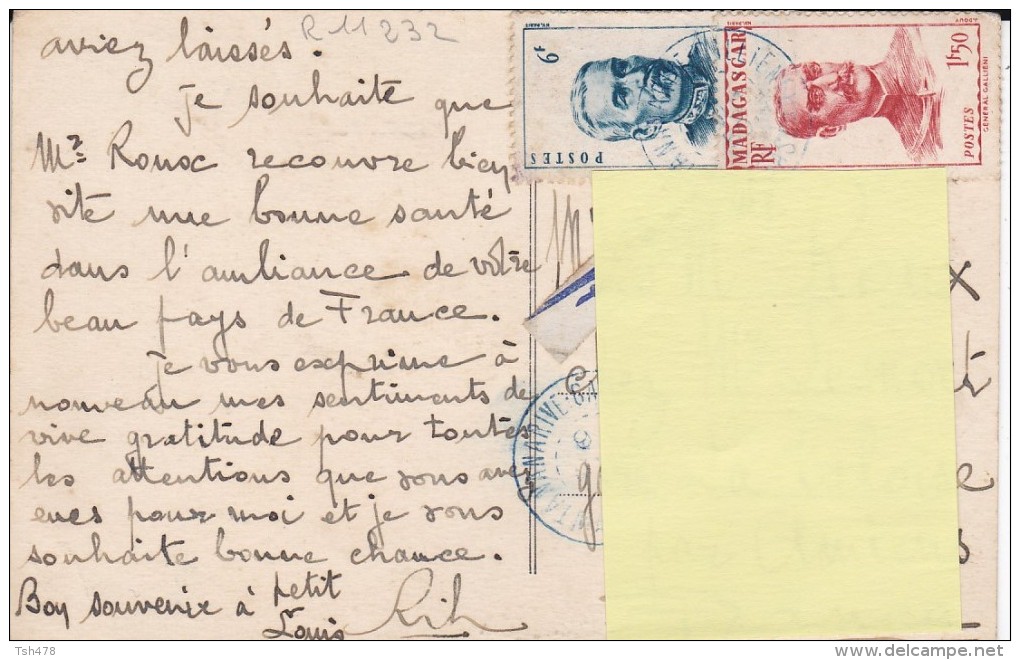 R 11232
aviez laissés.
Je souhaite que
Mr Ronoc recouvre bien
vite une bonne santé
dans l'ambiance de votre
beau pays de France.
Je vous exprime à
nouveau mes sentiments de
vive gratitude pour toutes
les attentions que vous avez
eues pour moi et je vous
souhaite bonne chance.
Bon souvenir à petit
Louis
6F
POSTES
MADAGASCAR
RF
1F50
POSTES
GENERAL GALLIENI
TANANARIVE GA
Tsh478
www.delcampe.net